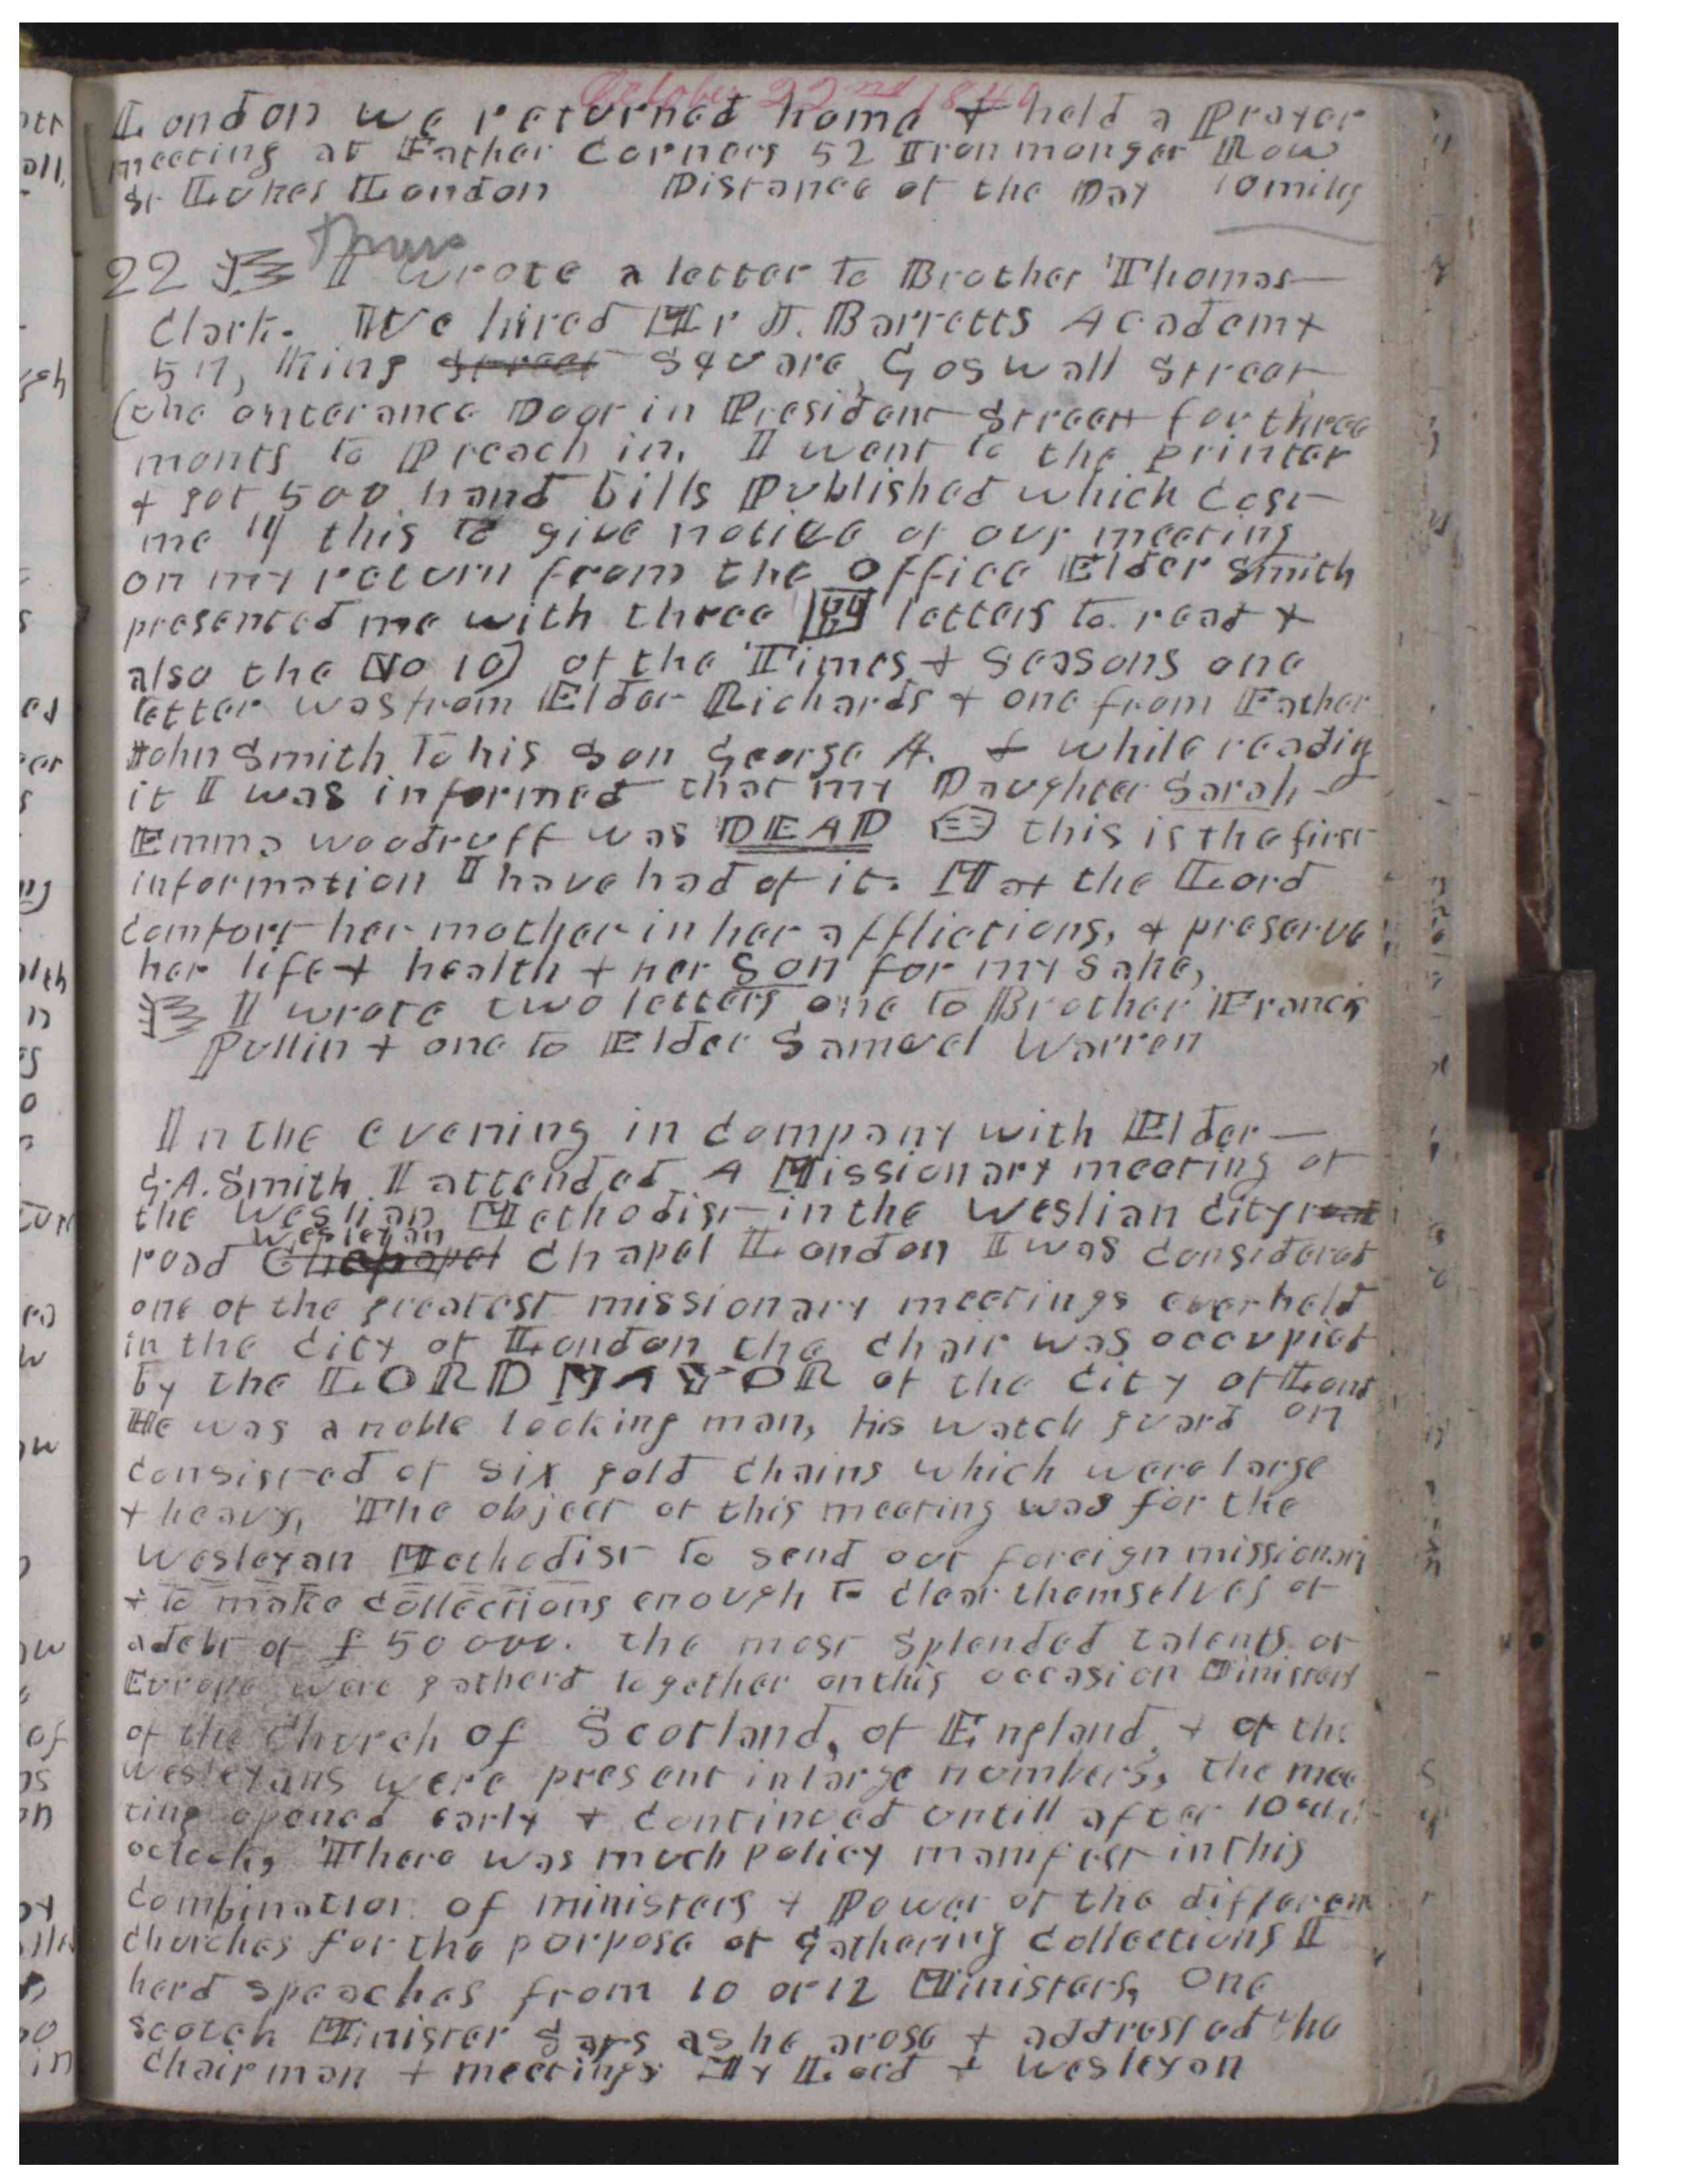 October 22nd 1840
London we returned home & held a Prayer
meeting at Father Corners 52 Ironmonger Row
St Lukes London Distance of the Day 10 miles
Thurs
22 I wrote a letter to Brother Thomas
Clark. We hired Mr J. Barretts Academy
57, King Street Square, Goswall Street
(the enterance Door in President Street for three
monts to Preach in. I went to the printer
& got 500 hand bills Published which Cost
me this to give notice of our meeting
on my return from the Office Elder Smith
presented me with three letters to read &
also the No 10) of the Times & Seasons one
letter was from Elder Richards & one from Father
John Smith To his Son George A. & while reading
it I was informed that my Daughter Sarah
Emma Woodruff was DEAD this is the first
information I have had of it. May the Lord
Comfort her mother in her afflictions, & preserve
her life & health & her Son for my sake,
I wrote two letters one to Brother Francis
Pullin & one to Elder Samuel Warren
In the evening in Company with Elder
G.A. Smith I attended A Missionary meeting of
the Weslian Methodist in the Weslian City road
Wesleyan
road Chapapel Chapel London I was Considered
one of the greatest missionary meetings ever held
in the City of London the Chair was occupied
by the LORD MAYOR of the City of Lond
on
He was a noble looking man, his watch guard
Consisted of six gold Chains which were large
& heavy, The object of this meeting was for the
Wesleyan Methodist to send out foreign missionari
& to make Collections enough to clear themselves of
a debt of £50000. the most splended talents of
Europe were gatherd together on this occasion Ministers
of the Church of Scotland, of England, & of the
Wesleyans were present in large numbers, the mee
ting opened early & Continued untill after 10
oclock, There was much policy manifest in this
Combination of ministers & Power of the different
Churches for the porpose of gathering Collections I
herd speaches from 10 or 12 Ministers, One
scotch Minister Says as he arose & addressed the
Chairman & meetings My Lord & Wesleyan